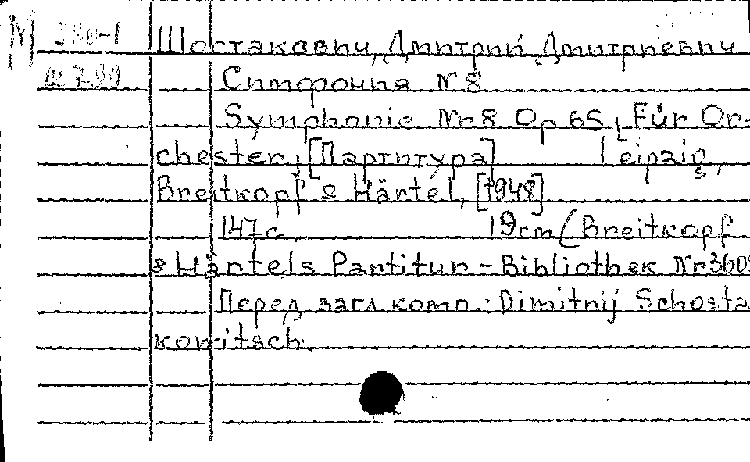 М Шостакович, Дмитрий Дмитриевич
Симфония №8
Symphonie Nr8 Op 65, Für Or-
chester, [Партитура] Leipzig,
Breitkopf & Härtel, [1948]
147с. 19cm (Breitkopf
& Härtels Partitur-Bibliothek Nr360
Перед загл. комп.: Dimitrij Schosta
kowitsch.